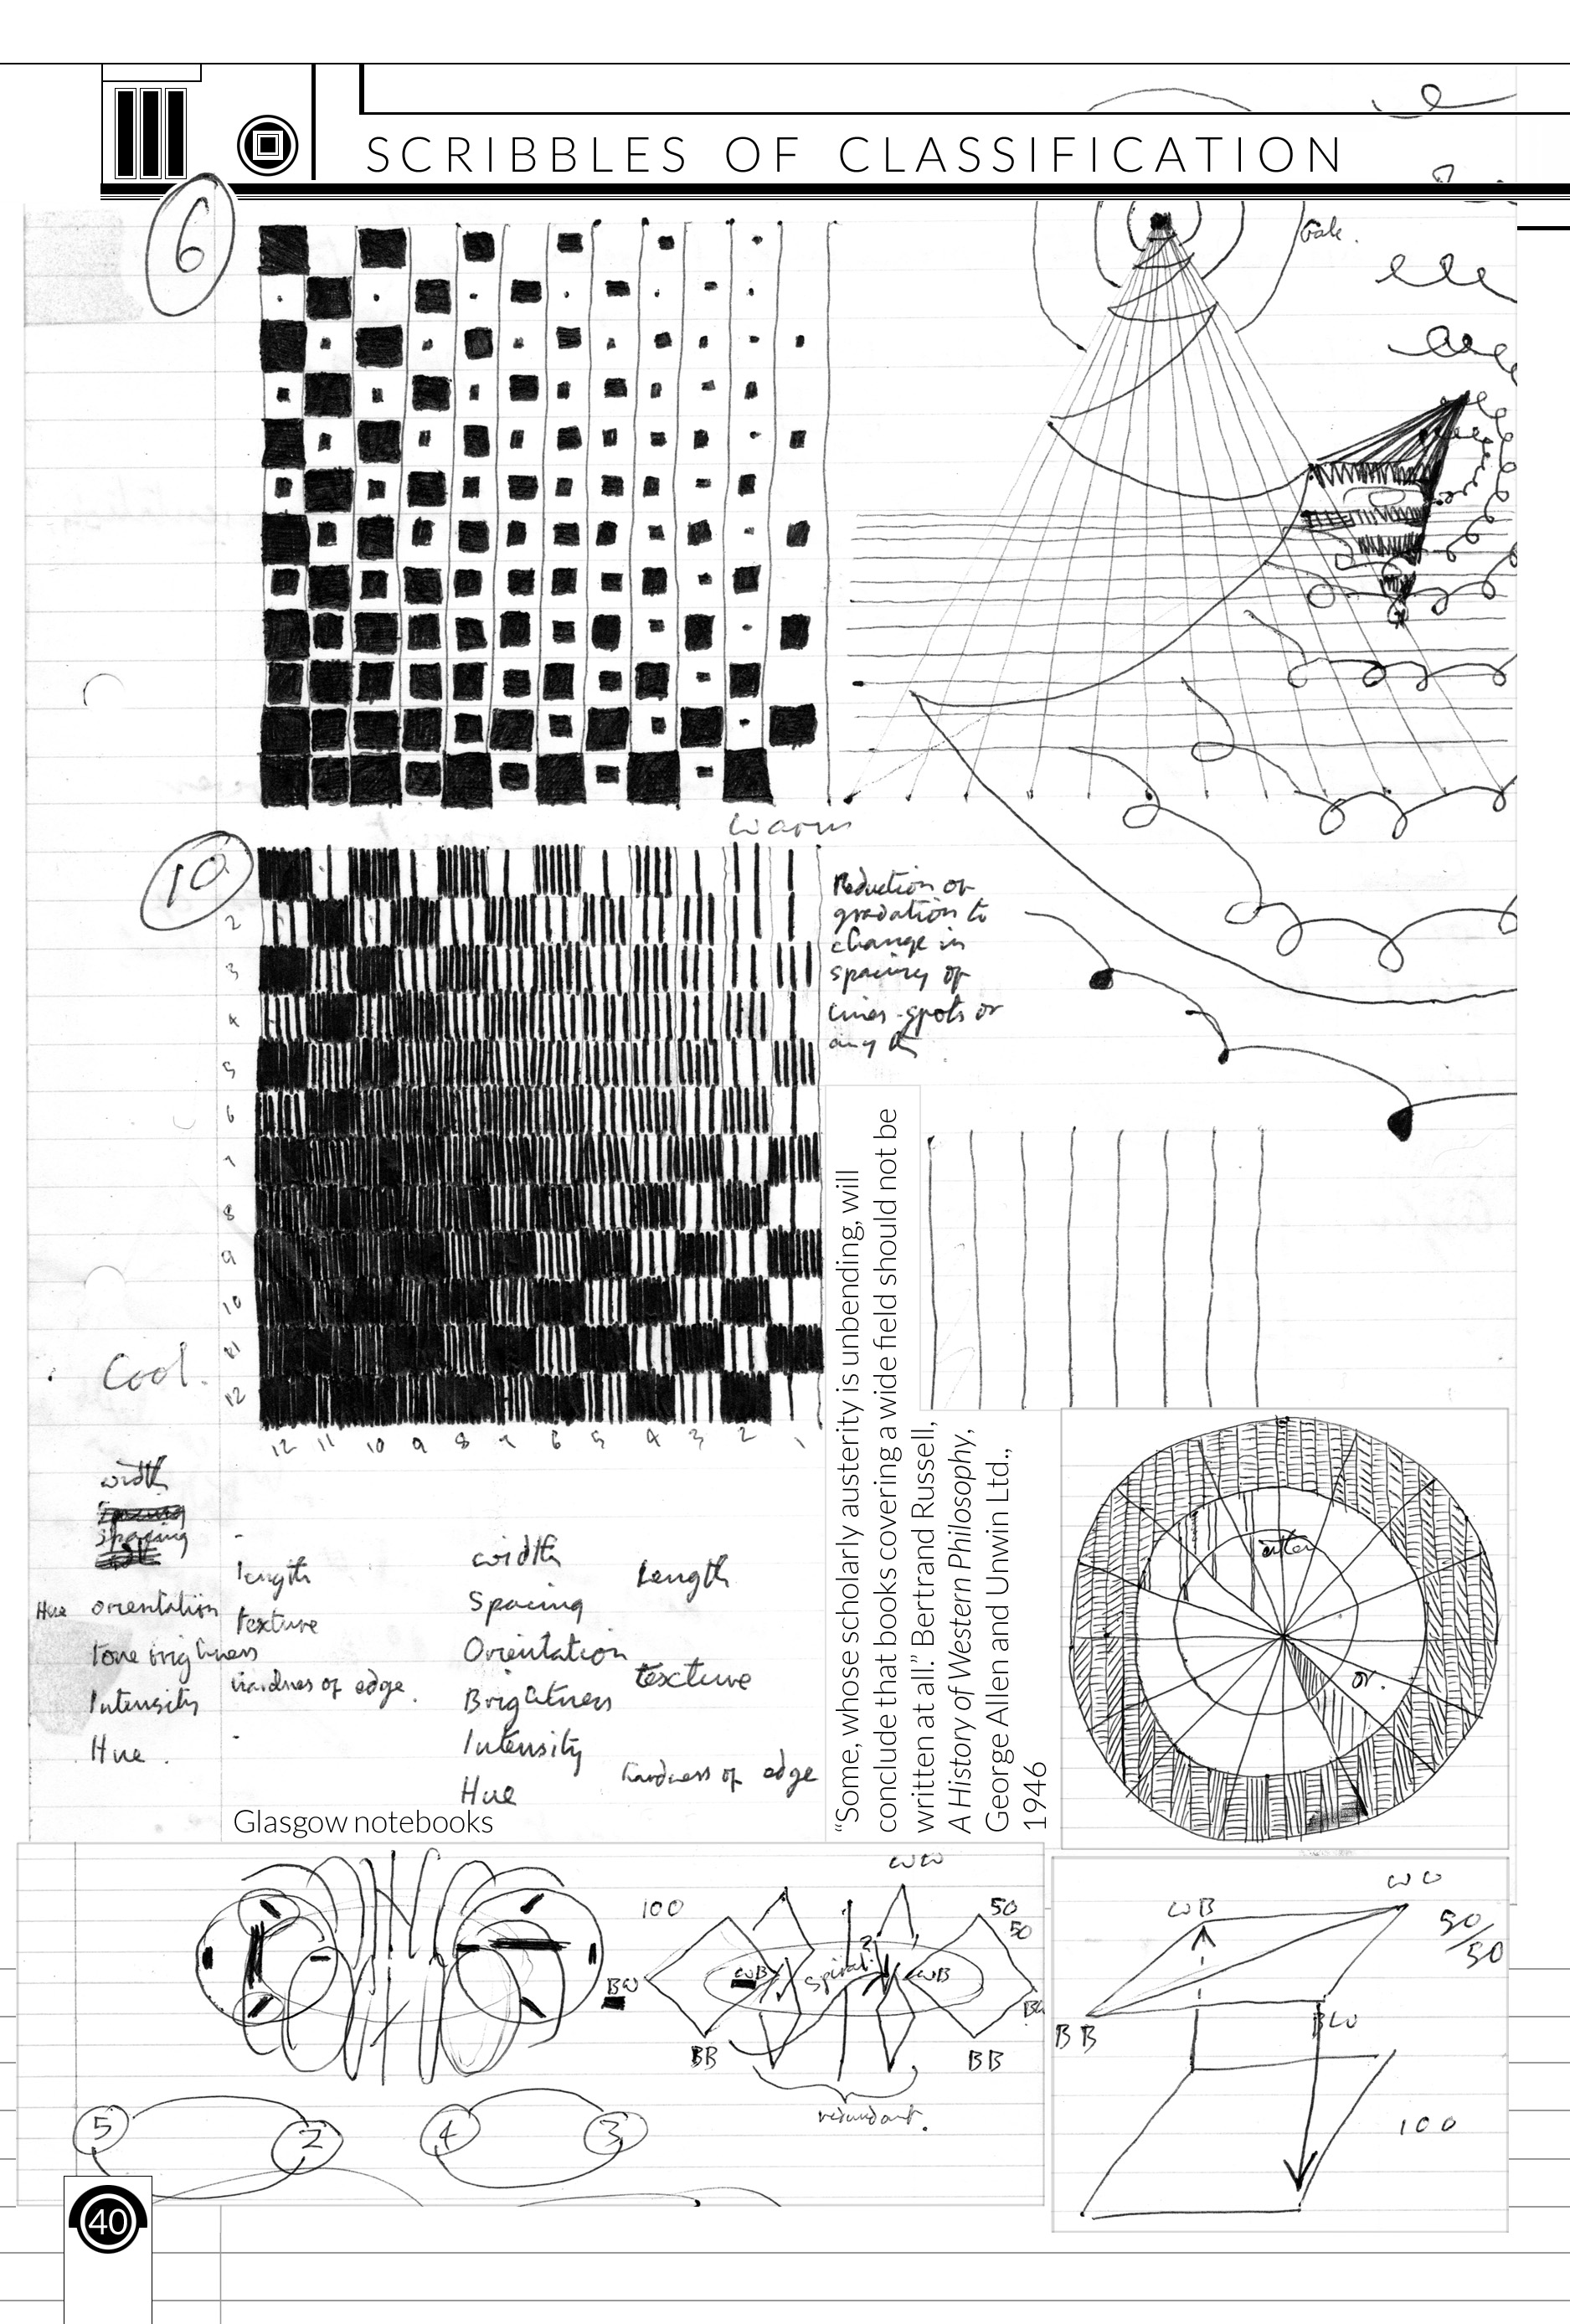 SCRIBBLES OF CLASSIFICATION
6
Warm
10
Reduction or
gradation to
change in
spacing of
lines-spots or
2
3
4
5
6
7
8
9
10
11
12
Cool.
12 11 10 9 8 7 6 5 4 3 2 1
width
spacing
Hue orientation
tone brightness
Intensity
Hue.
length
texture
hardness of edge.
width
Spacing
Orientation
Brightness
Intensity
Hue
Length
texture
hardness of edge
Glasgow notebooks
“Some, whose scholarly austerity is unbending, will
conclude that books covering a wide field should not be
written at all.” Bertrand Russell,
A History of Western Philosophy,
George Allen and Unwin Ltd.,
1946
or.
100
50
50
BW
WB
spiral
2
WB
BB
BB
redundant.
5
2
4
3
WB
50/50
BB
BW
100
40